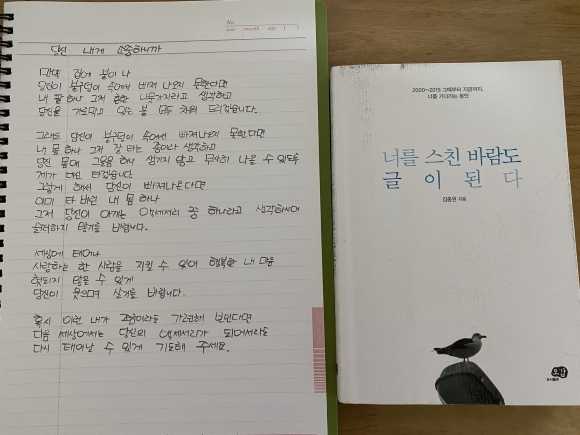 No.
year month day ( )
당신 내게 소중하니까
만약 집에 불이 나
당신이 불구덩이 속에서 빠져 나오지 못한다면
내 팔 하나 그저 흔한 나뭇가지라고 생각하고
당신을 가로막고 있는 불 모두 치워 드리겠습니다.
그래도 당신이 불구덩이 속에서 빠져나오지 못한다면
내 몸 하나 그저 잘 타는 종이라 생각하고
당신 몸에 그을음 하나 생기지 않고 무사히 나올 수 있도록
제가 대신 타겠습니다.
그렇게 해서 당신이 빠져나온다면
이미 타 버린 내 몸 하나
그저 당신이 아끼는 액세서리 중 하나라고 생각하시며
슬퍼하지 않기를 바랍니다.
세상에 태어나
사랑하는 한 사람을 지킬 수 있어 행복한 내 마음
헛되지 않을 수 있게
당신이 웃으며 살기를 바랍니다.
혹시 이런 내가 조금이라도 가련해 보인다면
다음 세상에서는 당신의 액세서리가 되어서라도
다시 태어날 수 있게 기도해 주세요.
2000~2015 그때부터 지금까지,
너를 기다리는 동안
너를 스친 바람도
글이 된다
김종원 지음
오감
도서출판